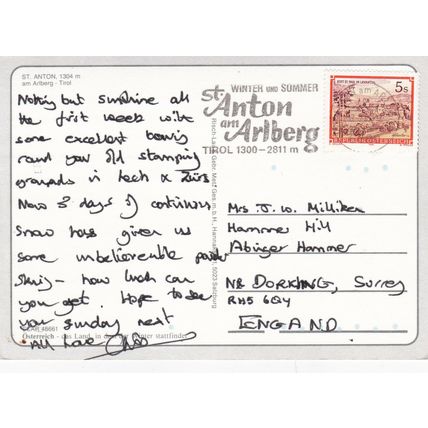 ST. ANTON, 1304 m
am Arlberg - Tirol
Nothing but sunshine all
the first week with
some excellent touring
round your old stamping
grounds in Lech & Zürs
Now 3 days of continuous
snow has given us
some unbelievable powder
skiing - how lucky can
you get. Hope to see
you Sunday next
All love
46661
Österreich - das Land, in dem der Winter stattfindet
Risch-Lau
5023 Salzburg
WINTER UND SOMMER
St. Anton
am Arlberg
TIROL 1300-2811 m
5s
REPUBLIK ÖSTERREICH
Mrs J. W. Milliken
Hammer Hill
Abinger Hammer
NR DORKING, Surrey
RH5 6QY
ENGLAND